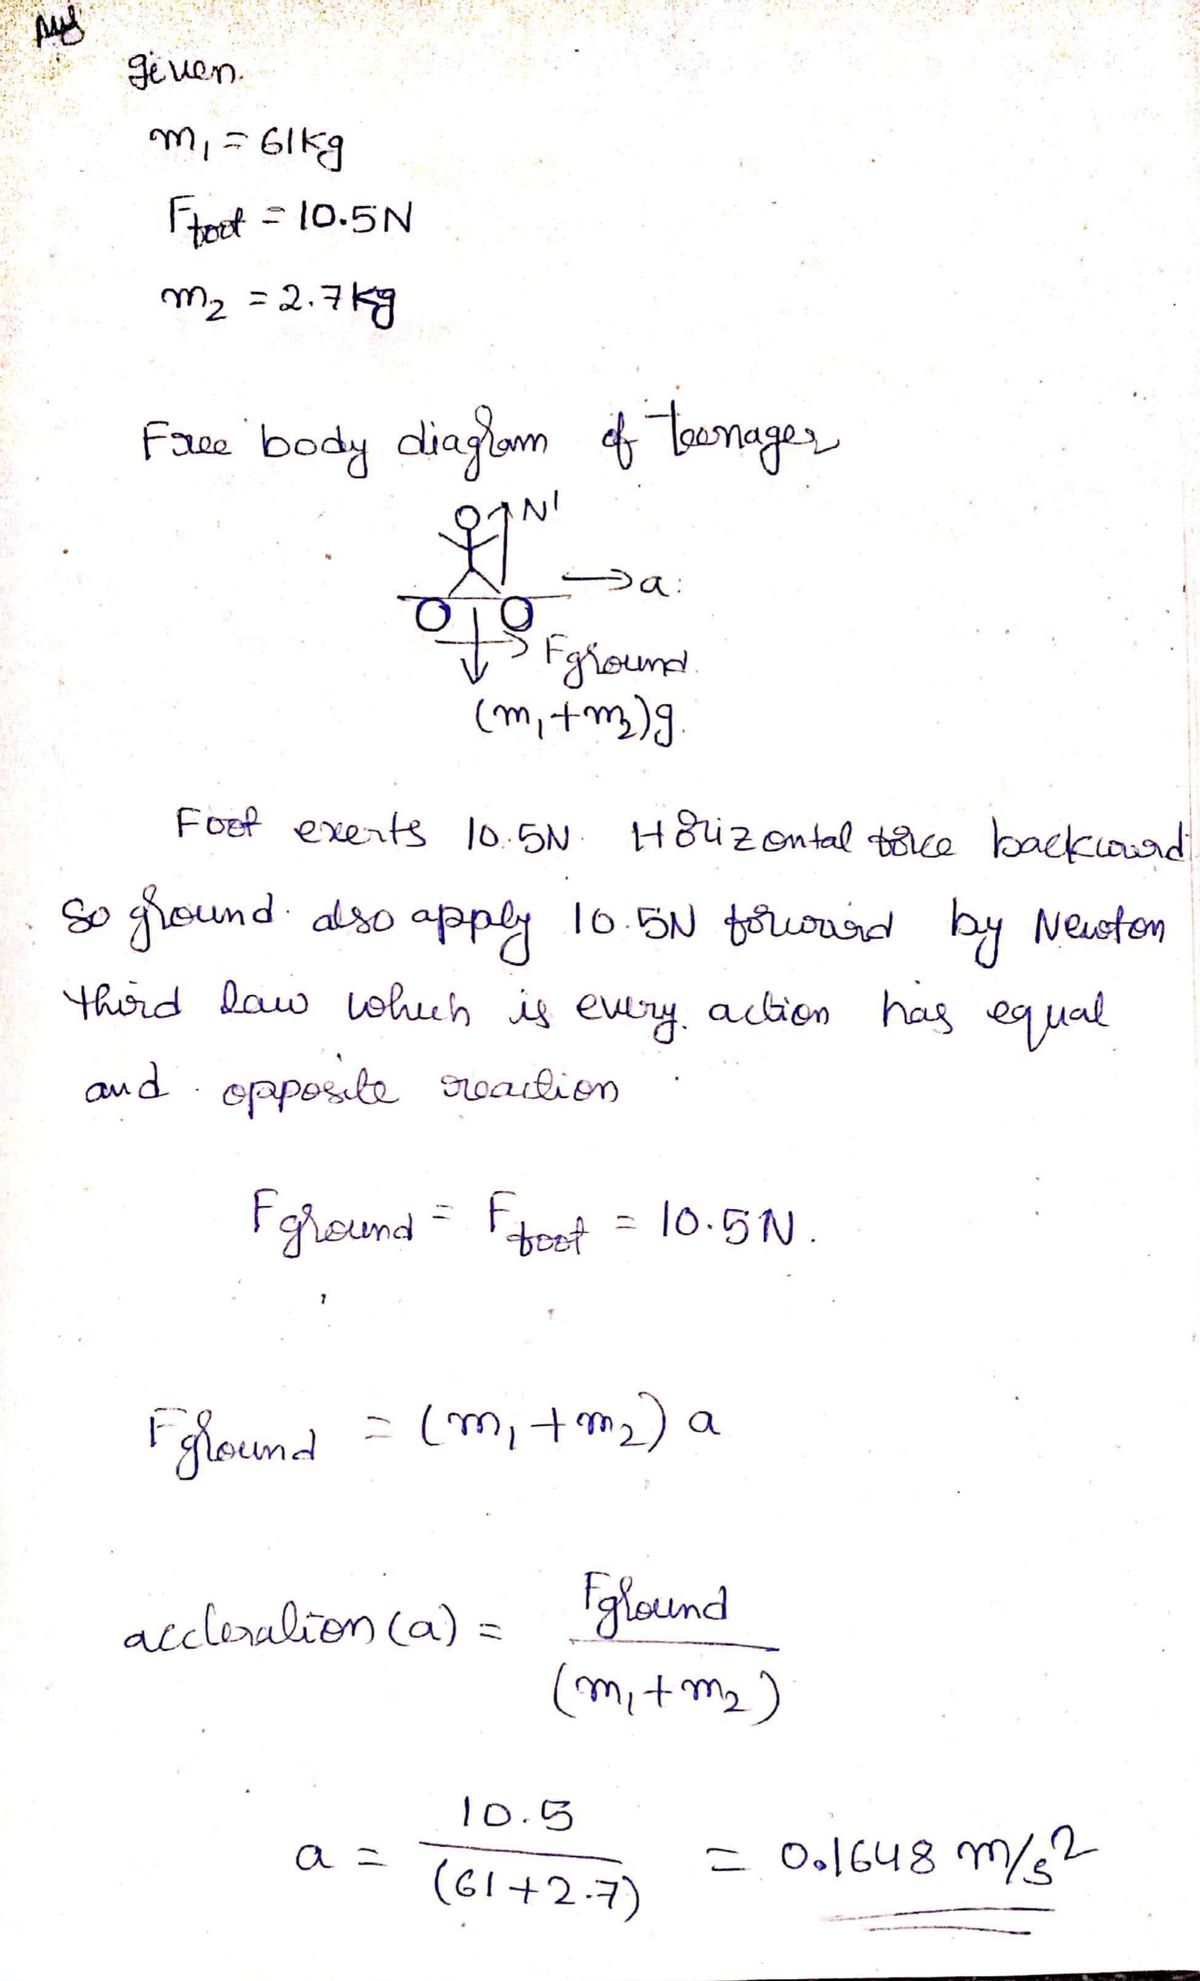 Ans
given.
m₁ = 61kg
Ffoot = 10.5N
m₂ = 2.7kg
Free body diagram of teenager
N'
→a
Fground
(m₁+m₂)g.
Foot exerts 10.5N Horizontal force backward
so ground also apply 10.5N forward by Newton
third law which is every action has equal
and opposite reaction
Fground = Ffoot = 10.5N.
Fground = (m₁+m₂) a
accleration (a) = Fground
(m₁+m₂)
10.5
a = = 0.1648 m/s²
(61+2.7)